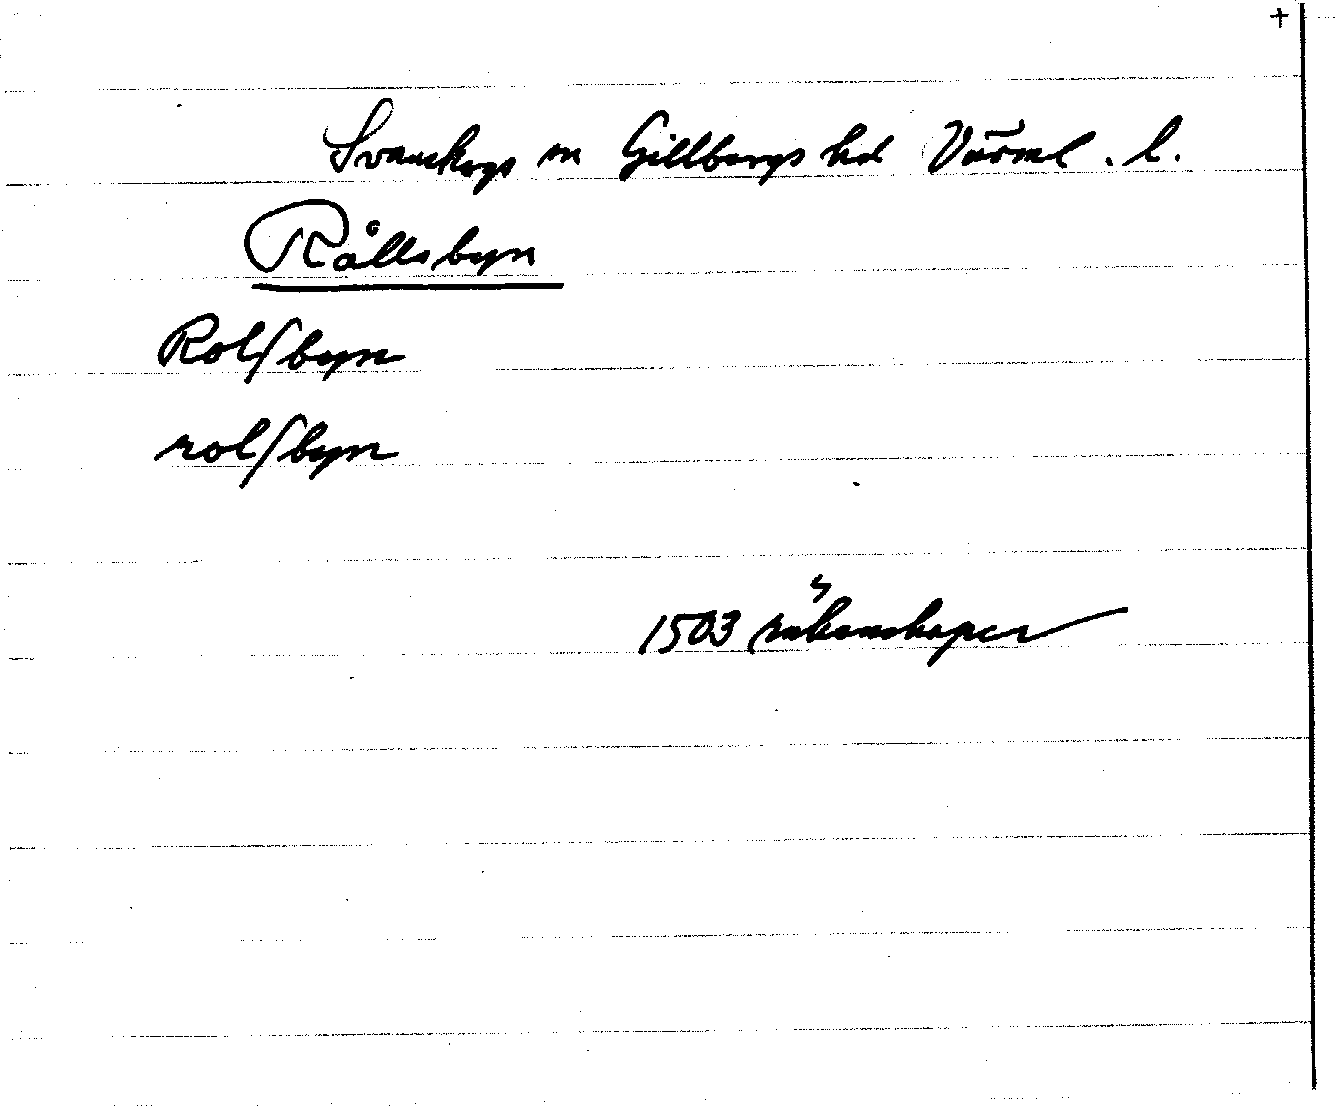 +
Svanskogs sn Gillbergs hd Värml. l.
Rållsbyn
Rolſbyn
rolſbyn
1503 räkenskaper